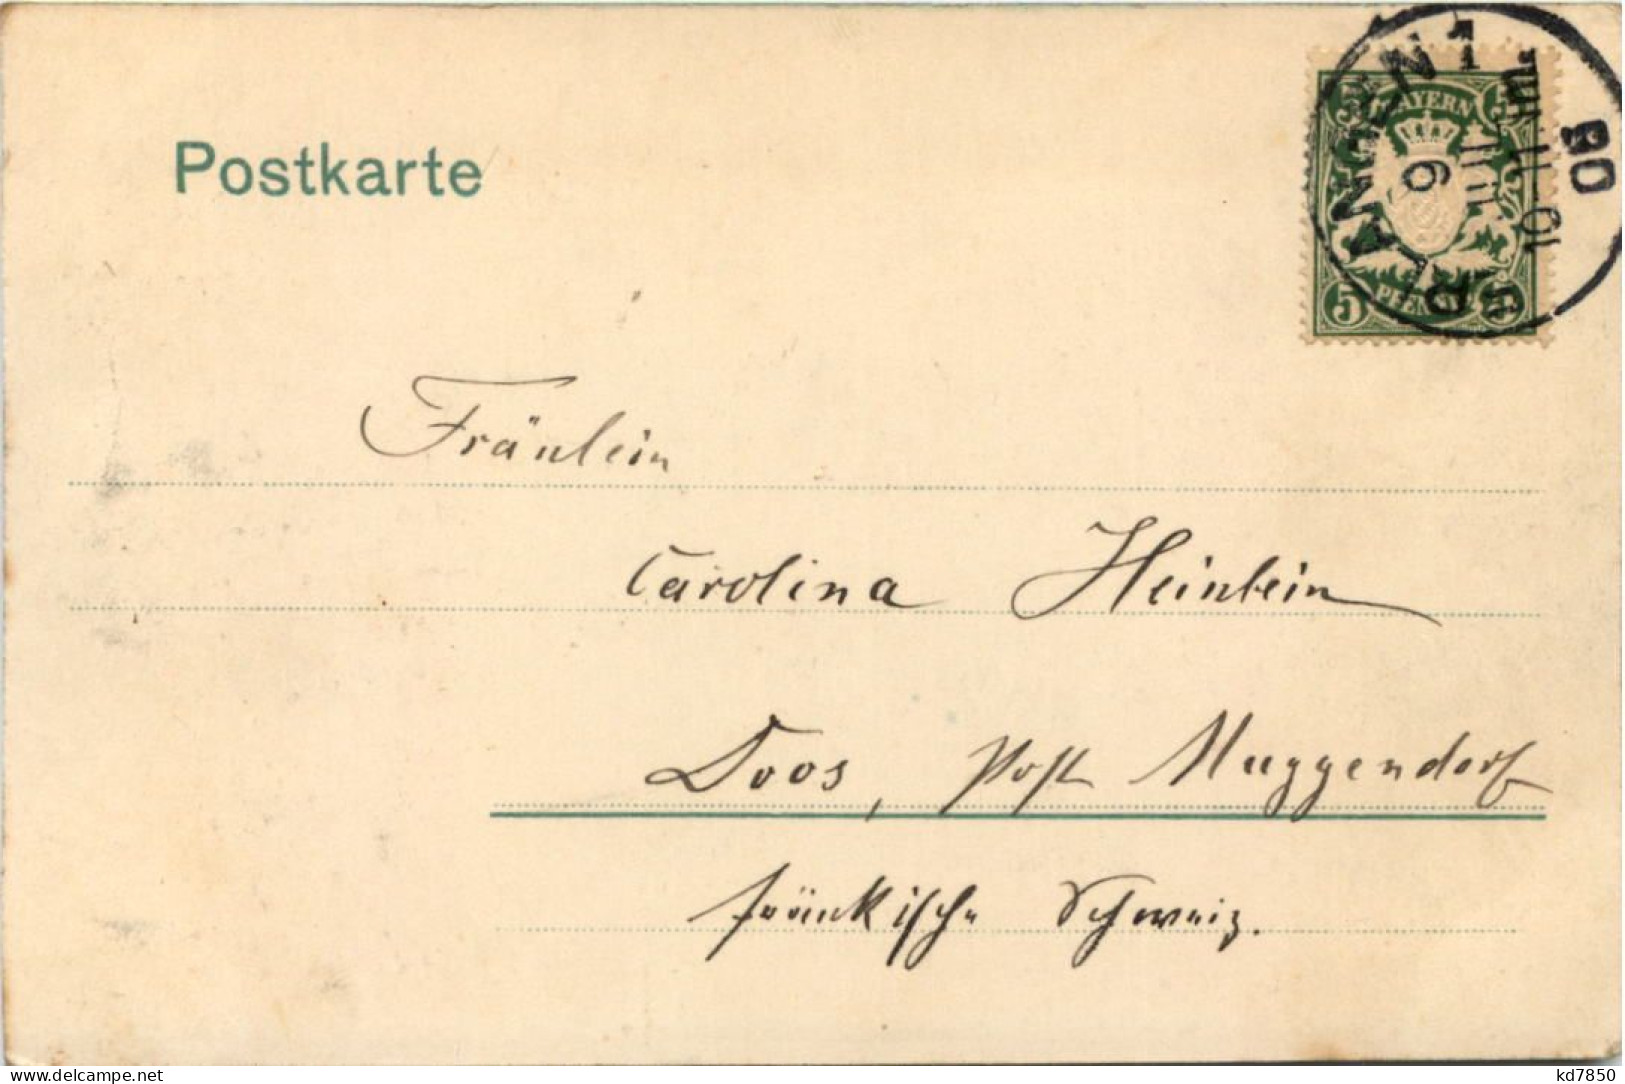 Postkarte
BAYERN
5 5
5 PFENNIG 5
ERLANGEN 1
Fräulein
Carolina Heinlein
Doos, Post Muggendorf
fränkische Schweiz.
www.delcampe.net
kd7850